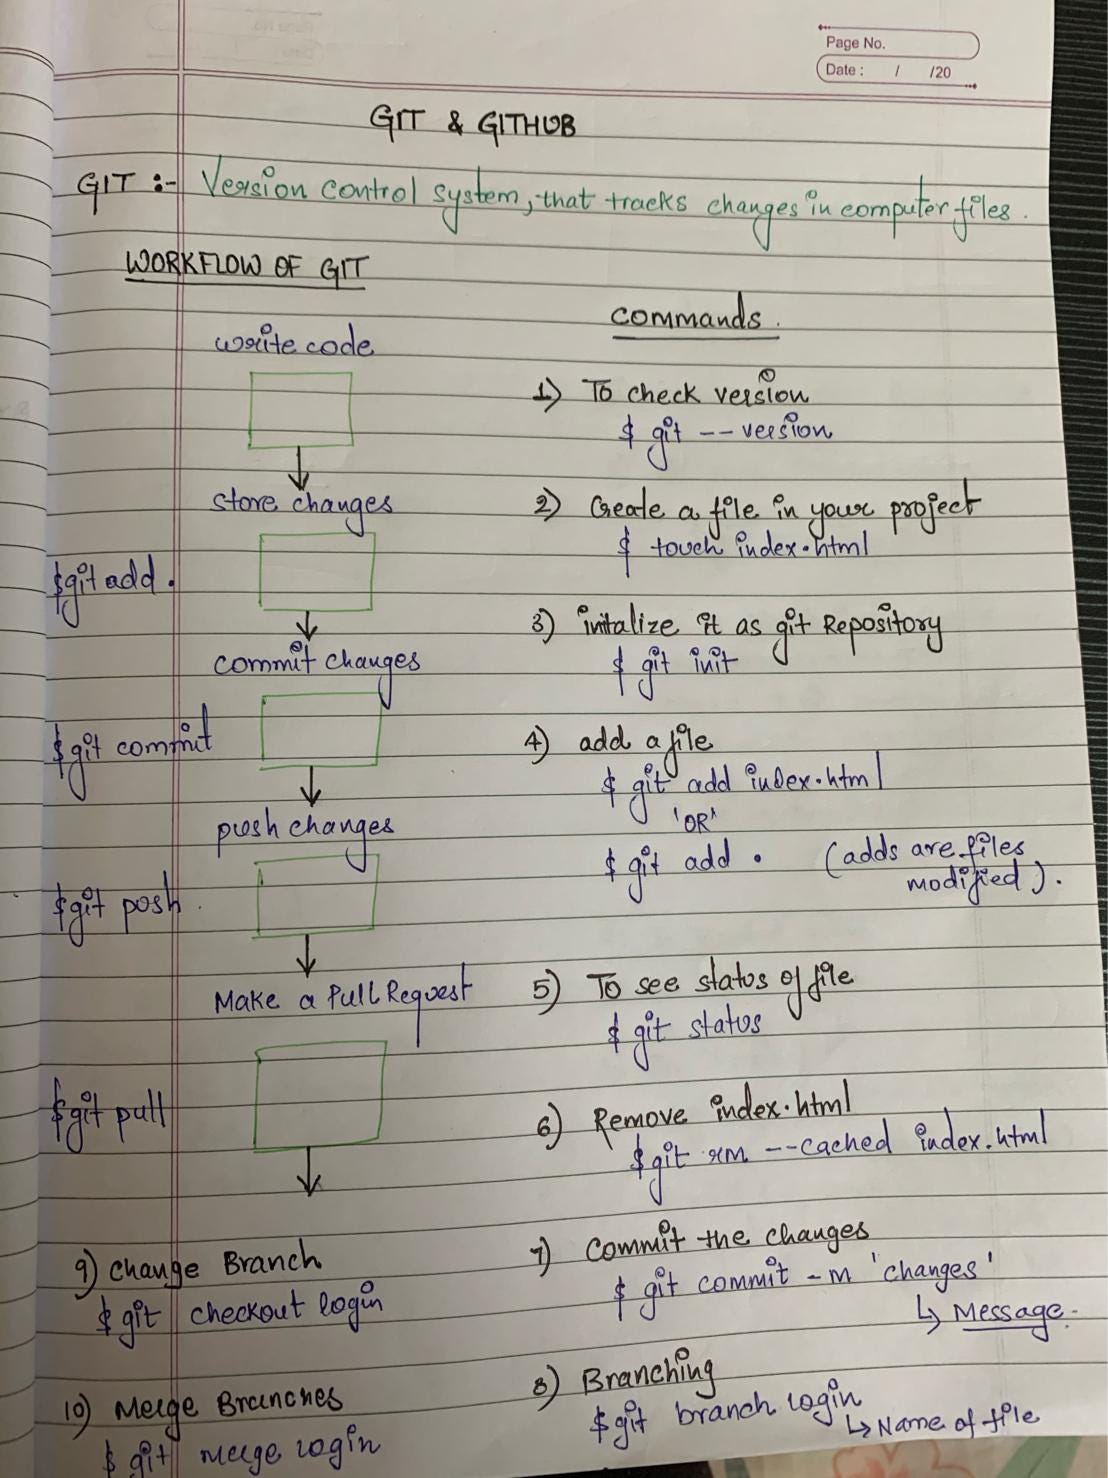 Page No.
Date : / /20
GIT & GITHUB
GIT :- Version control system, that tracks changes in computer files.
WORKFLOW OF GIT
write code
store changes
$git add .
commit changes
$git commit
push changes
$git posh.
Make a Pull Request
$git pull
commands.
1) To check version
$ git -- version
2) Create a file in your project
$ touch index.html
3) initalize it as git Repository
$ git init
4) add a file
$ git add index.html
'OR'
$ git add . (adds are files
modified).
5) To see status of file
$ git status
6) Remove index.html
$git rm --cached index.html
7) Commit the changes
$ git commit -m 'changes'
↳ Message.
8) Branching
$git branch login
↳ Name of file
9) Change Branch
$ git checkout login
10) Merge Branches
$ git merge login